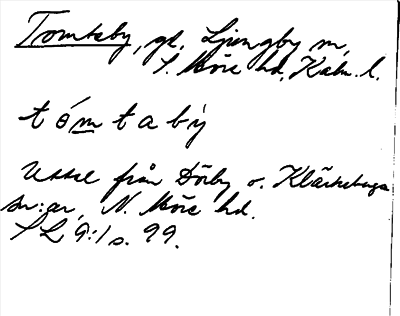 Tomteby, gd. Ljungby sn,
S. Möre hd, Kalm. l.
tómtabý
Uttal från Dörby o. Kläckeberga
sn:ar, N. Möre hd.
SL 9:1 s. 99.